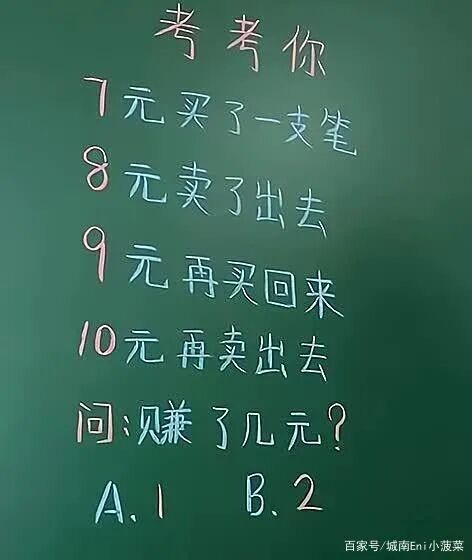 考考你
7元买了一支笔
8元卖了出去
9元再买回来
10元再卖出去
问:赚了几元?
A.1 B.2
百家号/城南Eni小菠菜